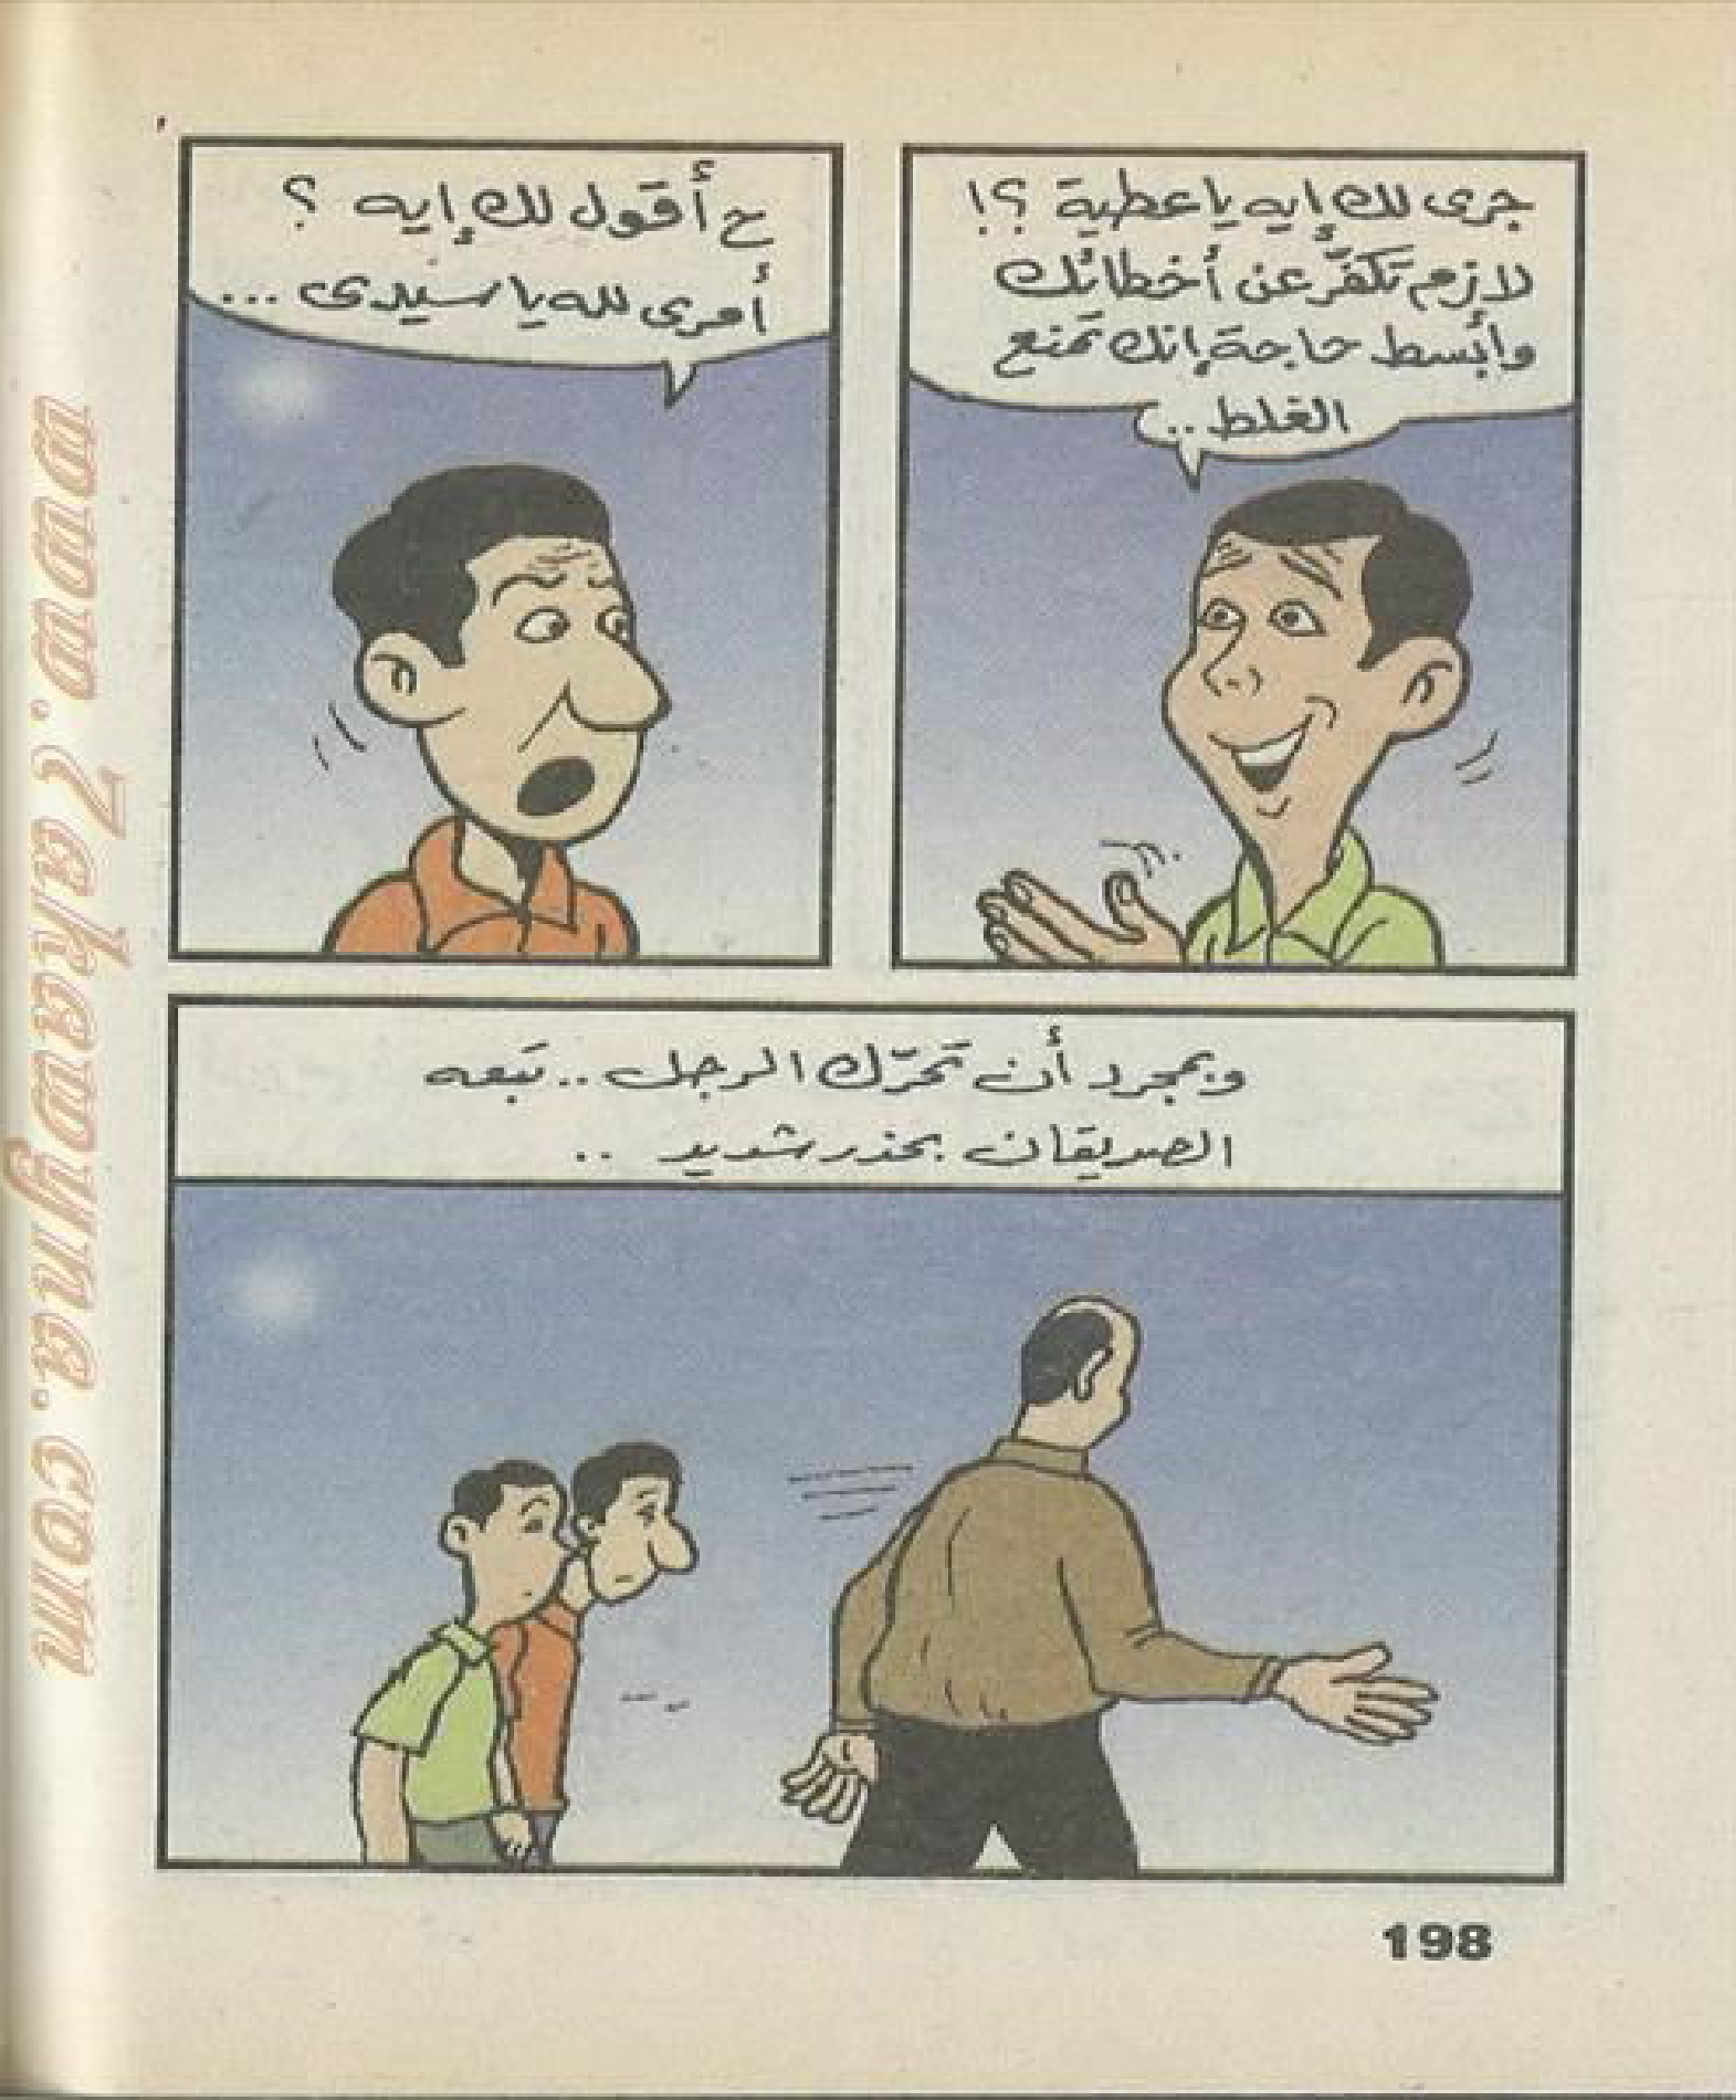 جرى لك إيه يا عطية ؟!
لازم تكفّر عن أخطائك
وأبسط حاجة إنك تمنع
الغلط ..
ح أقول لك إيه ؟
أمرى لله يا سيدى ...
وبمجرد أن تحرّك الرجل .. تبعه
الصديقان بحذر شديد ..
198
www.7akawyina.com